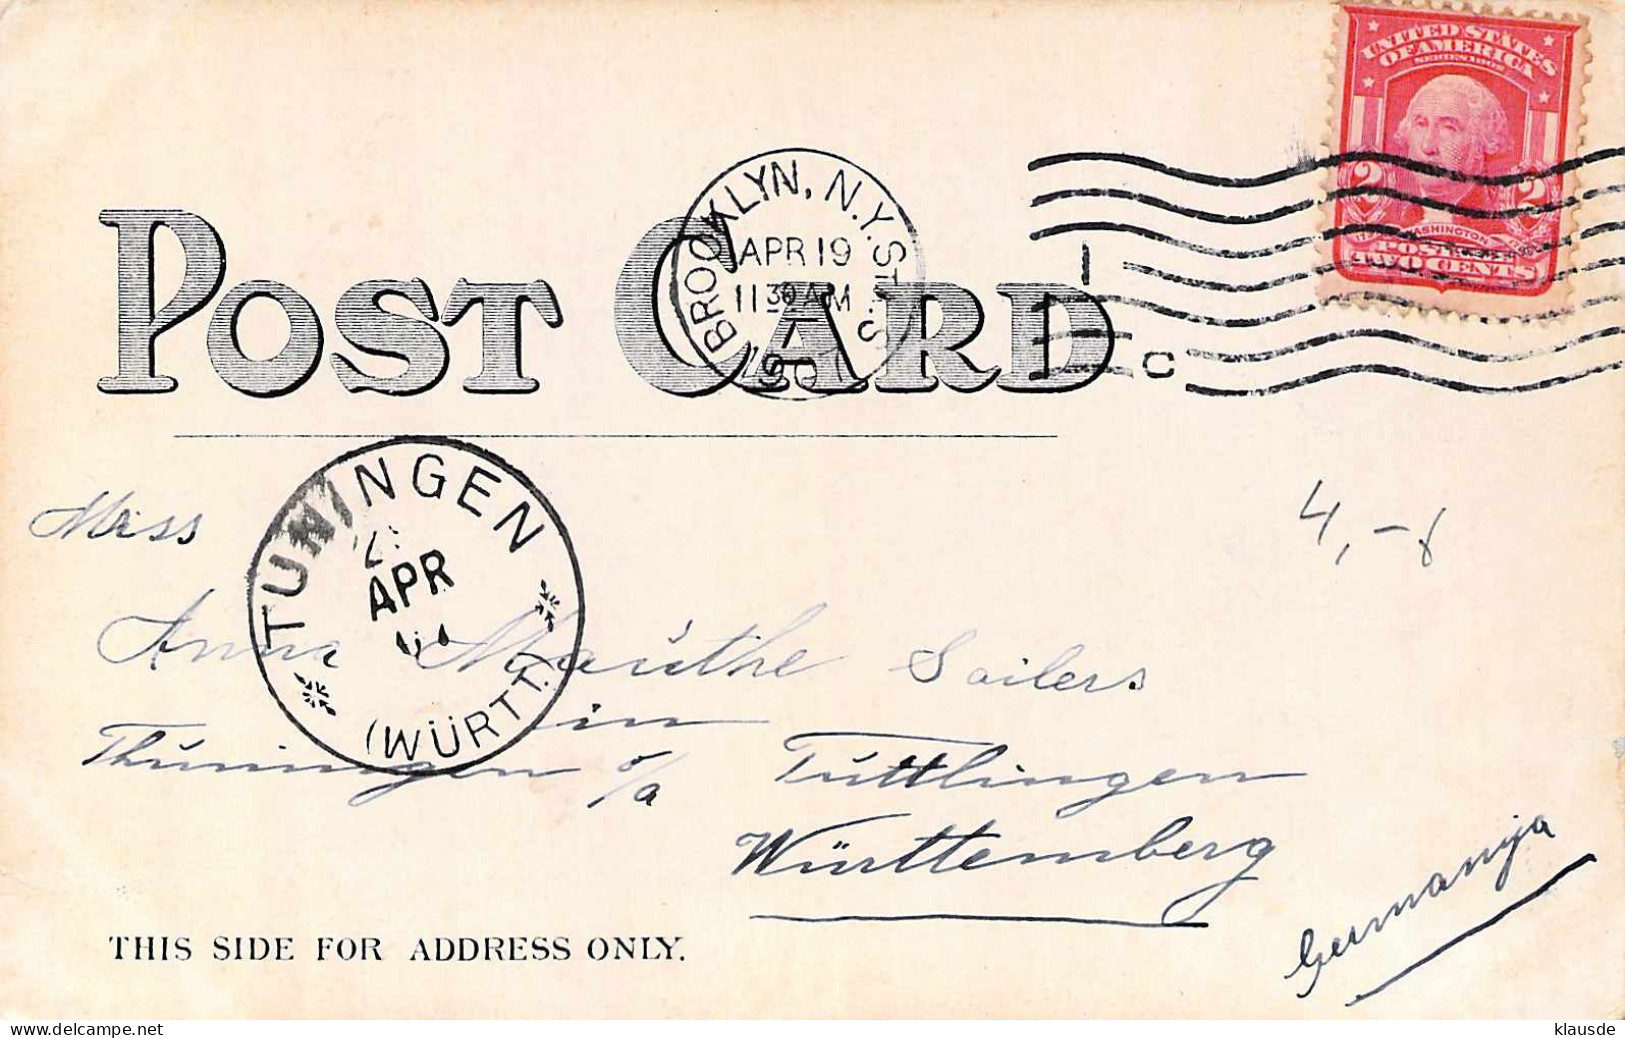 UNITED STATES
OF AMERICA
SERIES 1902
2 2
WASHINGTON
POSTAGE
TWO CENTS
BROOKLYN, N.Y. STA. S.
APR 19
11 30 AM
1 C
POST CARD
TUNINGEN
APR
(WÜRTT.)
4,-
Miss
Anna Mauthe Sailers
in
Thuningen o/a Tuttlingen
Württemberg
Germanija
THIS SIDE FOR ADDRESS ONLY.
klausde